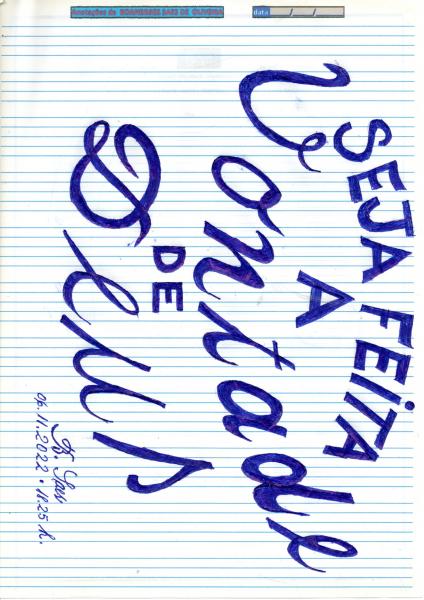 Anotações de BOANERGES SAES DE OLIVEIRA
data ___/___/___
SEJA FEiTA
A
Vontade
DE
Deus
B. Saes
06.11.2022 • 11.25 h.